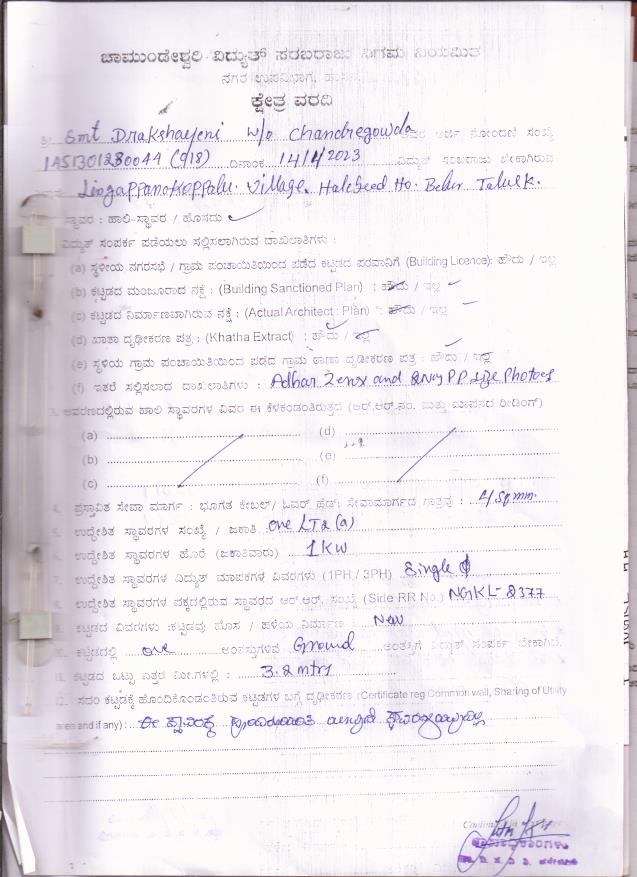 ಚಾಮುಂಡೇಶ್ವರಿ ವಿದ್ಯುತ್ ಸರಬರಾಜು ನಿಗಮ ನಿಯಮಿತ
ನಗರ ಉಪವಿಭಾಗ,
ಕ್ಷೇತ್ರ ವರದಿ
ಶ್ರೀ Smt Drakshayeni W/o Chandregowda ರವರ ಅರ್ಜಿ ನೋಂದಣಿ ಸಂಖ್ಯೆ
1451301280044 (918) ದಿನಾಂಕ 14/1/2023 ವಿದ್ಯುತ್ ಸಂಬರಾಜು ಬೇಕಾಗಿರುವ
Lingappanakoppalu. Village. Halebeed Ho. Belur Taluk.
ಸ್ಥಾವರ : ಹಾಲಿ-ಸ್ಥಾವರ / ಹೊಸದು ✓
ವಿದ್ಯುತ್ ಸಂಪರ್ಕ ಪಡೆಯಲು ಸಲ್ಲಿಸಲಾಗಿರುವ ದಾಖಲಾತಿಗಳು :
(a) ಸ್ಥಳೀಯ ನಗರಸಭೆ / ಗ್ರಾಮ ಪಂಚಾಯಿತಿಯಿಂದ ಪಡೆದ ಕಟ್ಟಡದ ಪರವಾನಿಗೆ (Building Licence): ಹೌದು / ಇಲ್ಲ
(b) ಕಟ್ಟಡದ ಮಂಜೂರಾದ ನಕ್ಷೆ : (Building Sanctioned Plan) : ಹೌದು / ಇಲ್ಲ ✓
(c) ಕಟ್ಟಡದ ನಿರ್ಮಾಣವಾಗಿರುವ ನಕ್ಷೆ : (Actual Architect : Plan) : ಹೌದು / ಇಲ್ಲ ✓
(d) ಖಾತಾ ದೃಢೀಕರಣ ಪತ್ರ : (Khatha Extract) : ಹೌದು ✓ / ಇಲ್ಲ
(e) ಸ್ಥಳಿಯ ಗ್ರಾಮ ಪಂಚಾಯಿತಿಯಿಂದ ಪಡೆದ ಗ್ರಾಮ ಠಾಣಾ ದೃಢೀಕರಣ ಪತ್ರ : ಹೌದು / ಇಲ್ಲ ✓
(f) ಇತರೆ ಸಲ್ಲಿಸಲಾದ ದಾಖಲಾತಿಗಳು : Adhar Zerox and PP size Photoes
3. ಆವರಣದಲ್ಲಿರುವ ಹಾಲಿ ಸ್ಥಾವರಗಳ ವಿವರ ಈ ಕೆಳಕಂಡಂತಿರುತ್ತದೆ (ಆರ್.ಆರ್.ನಂ. ಮತ್ತು ಮಾಪನದ ರೀಡಿಂಗ್)
(a) (d)
(b) (e)
(c) (f)
4. ಪ್ರಸ್ತಾವಿತ ಸೇವಾ ಮಾರ್ಗ : ಭೂಗತ ಕೇಬಲ್/ ಓವರ್ ಹೆಡ್: ಸೇವಾಮಾರ್ಗದ ಗಾತ್ರವು : 4 Sqmm.
5. ಉದ್ದೇಶಿತ ಸ್ಥಾವರಗಳ ಸಂಖ್ಯೆ / ಜಕಾತಿ one LT2 (a)
6. ಉದ್ದೇಶಿತ ಸ್ಥಾವರಗಳ ಹೊರೆ (ಜಕಾತಿವಾರು) 1 KW
7. ಉದ್ದೇಶಿತ ಸ್ಥಾವರಗಳ ವಿದ್ಯುತ್ ಮಾಪಕಗಳ ವಿವರಗಳು (1PH / 3PH) Single ϕ
8. ಉದ್ದೇಶಿತ ಸ್ಥಾವರಗಳ ಪಕ್ಕದಲ್ಲಿರುವ ಸ್ಥಾವರದ ಆರ್.ಆರ್. ಸಂಖ್ಯೆ (Side RR No.) NGKL-2377
9. ಕಟ್ಟಡದ ವಿವರಗಳು :ಕಟ್ಟಡವು ಹೊಸ / ಹಳೆಯ ನಿರ್ಮಾಣ : New
10. ಕಟ್ಟಡದಲ್ಲಿ one ಅಂತಸ್ತುಗಳಿವೆ Ground ಅಂತಸ್ತಿಗೆ ವಿದ್ಯುತ್ ಸಂಪರ್ಕ ಬೇಕಾಗಿದೆ.
11. ಕಟ್ಟಡದ ಒಟ್ಟು ಎತ್ತರ ಮೀ.ಗಳಲ್ಲಿ : 3.2 mtrs
12. ಸದರಿ ಕಟ್ಟಡಕ್ಕೆ ಹೊಂದಿಕೊಂಡಂತಿರುವ ಕಟ್ಟಡಗಳ ಬಗ್ಗೆ ದೃಢೀಕರಣ (Certificate reg Common wall, Sharing of Utility
area and if any) : ಈ